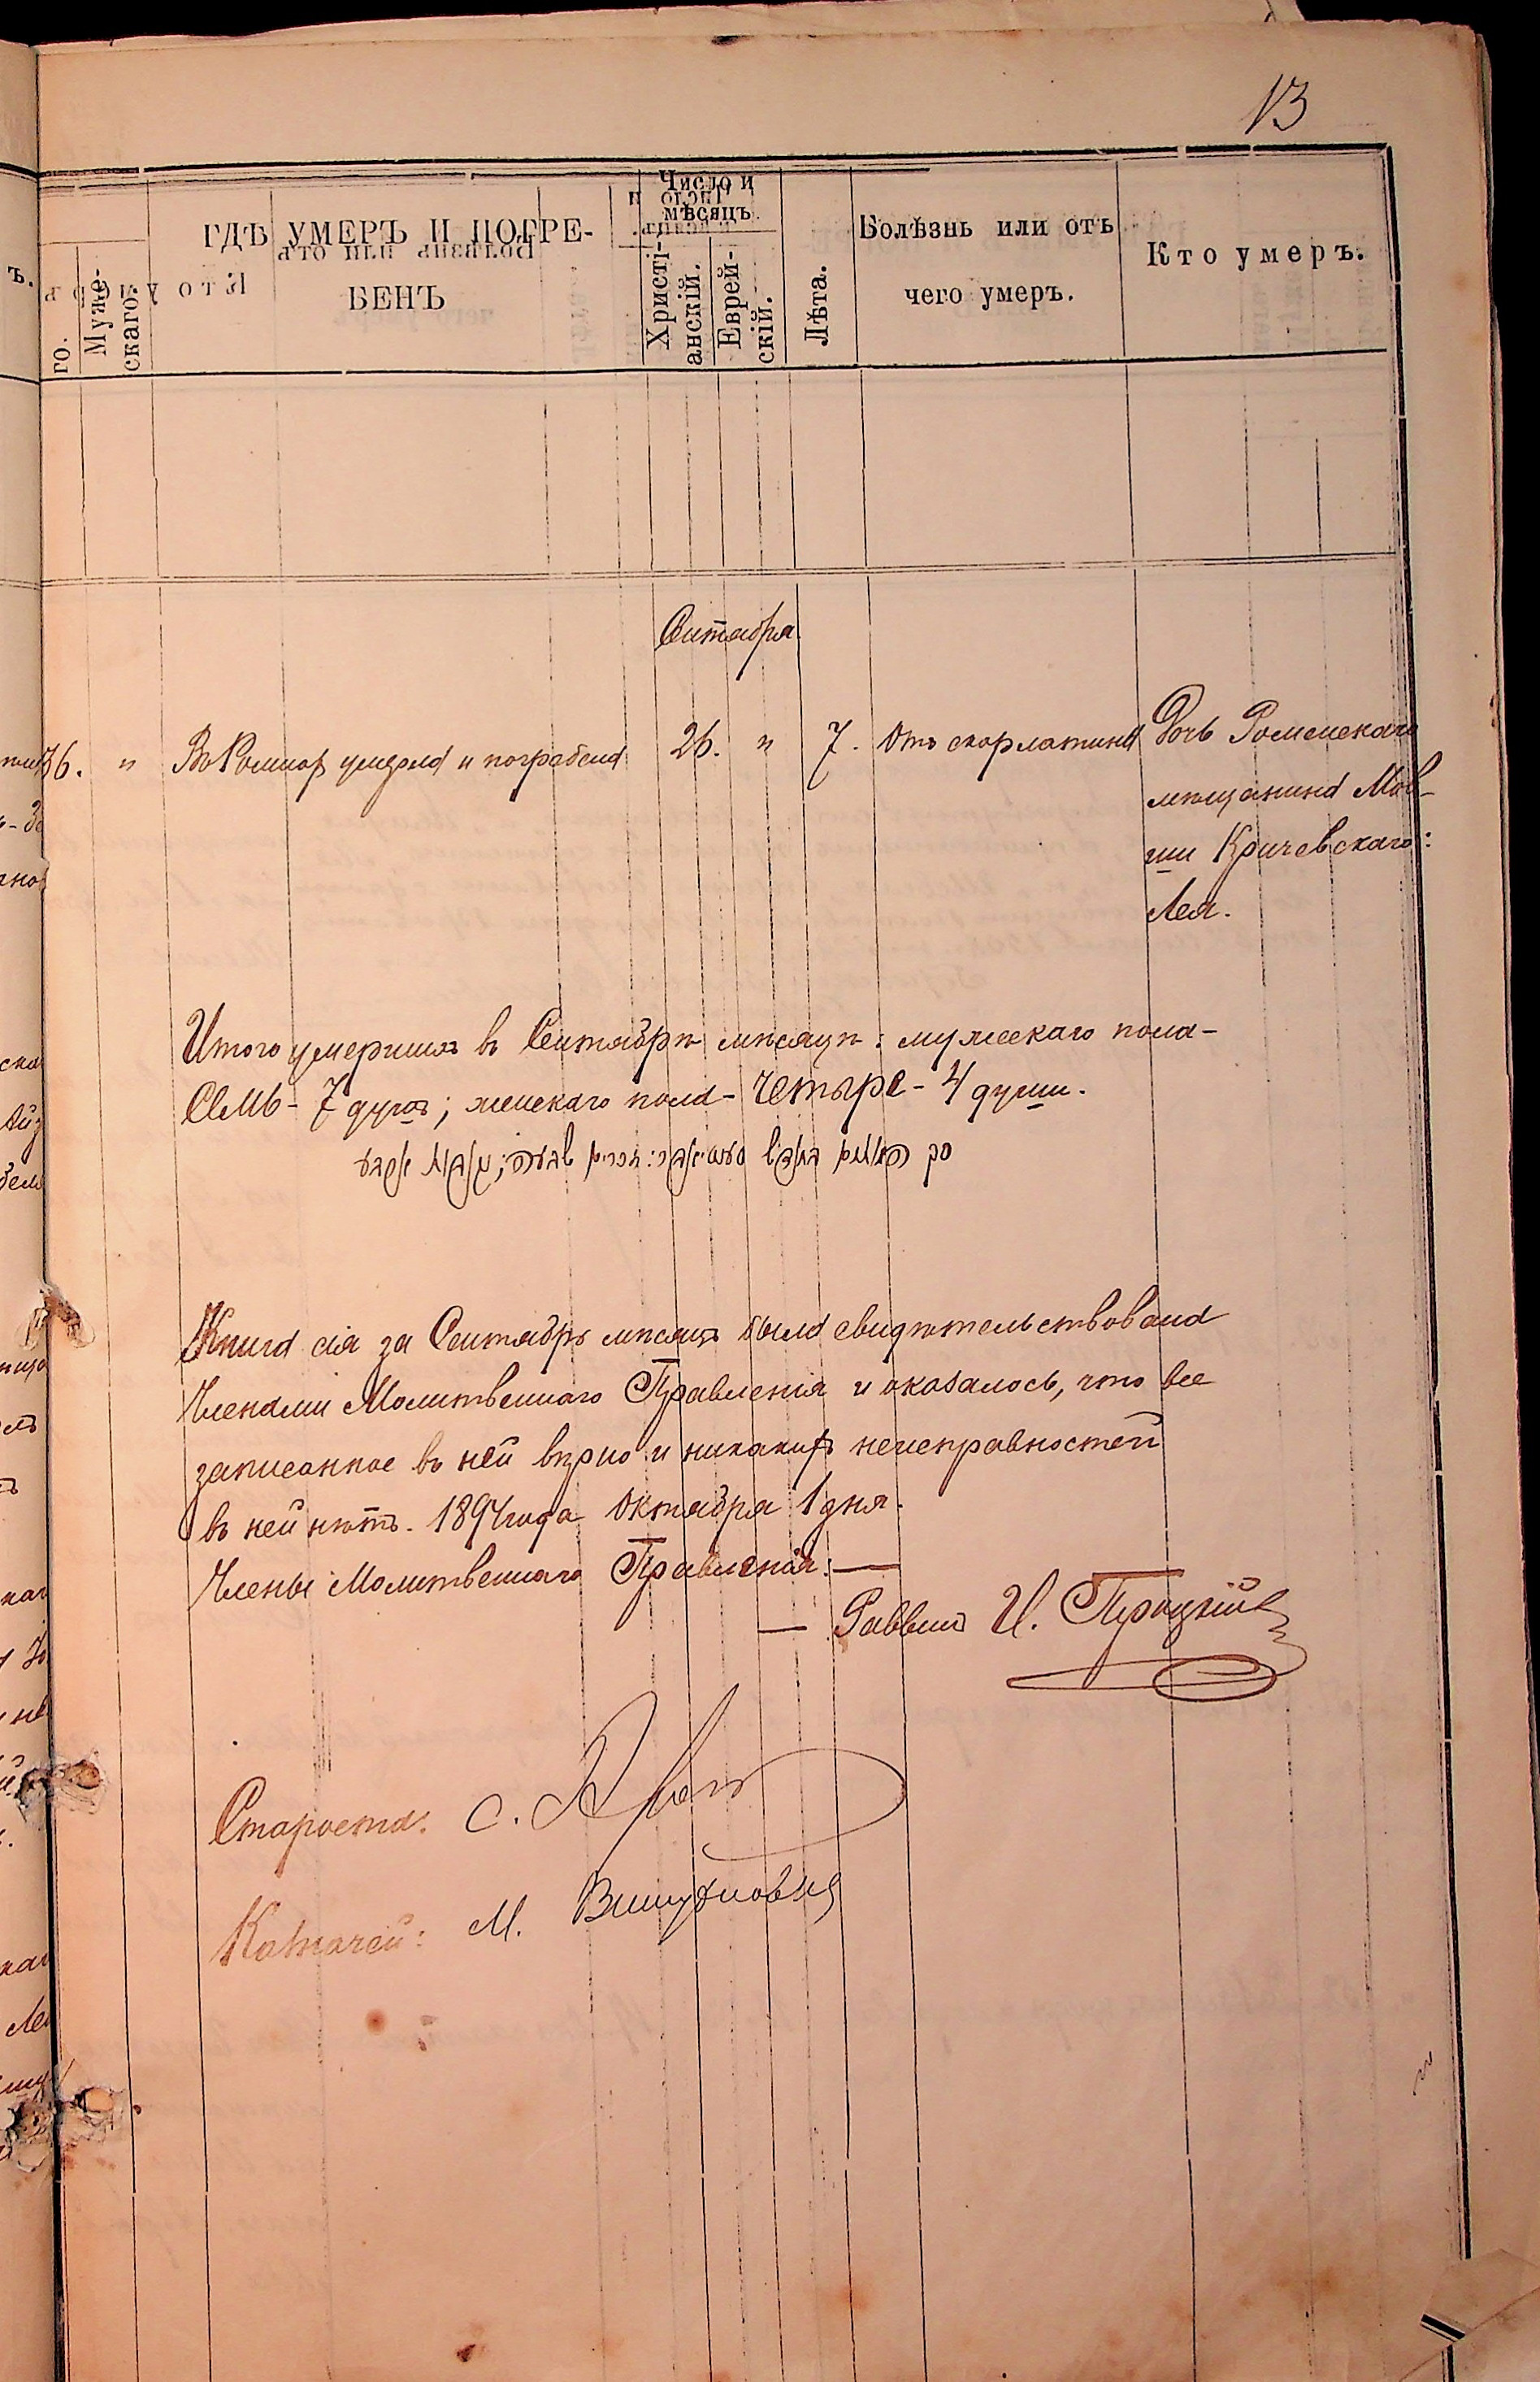 13
го.
Муже-
скаго.
ГДѢ УМЕРЪ И ПОГРЕ-
БЕНЪ
Число и
мѣсяцъ.
Христі-
анскій.
Еврей-
скій.
Лѣта.
Болѣзнь или отъ
чего умеръ.
Кто умеръ.
Сентября
36. " Въ Ромнах умерла и погребена 26. " 7. Отъ скарлатины Дочь Роменскаго
мѣщанина Мов-
ши Кричевскаго:
Лея.
Итого умершихъ въ Сентябрѣ мѣсяцѣ: мужескаго пола -
семь - 7 душъ; женскаго пола - четыре - 4 души.
Книга сія за Сентябрь мѣсяцъ была свидѣтельствована
Членами Молитвеннаго Правленія и оказалось, что все
записанное въ ней вѣрно и никакихъ неисправностей
въ ней нѣтъ. 1894 года Октября 1 дня.
Члены Молитвеннаго Правленія: —
— Раввинъ И. Троцкій
Староста: С.
Казначей: М.